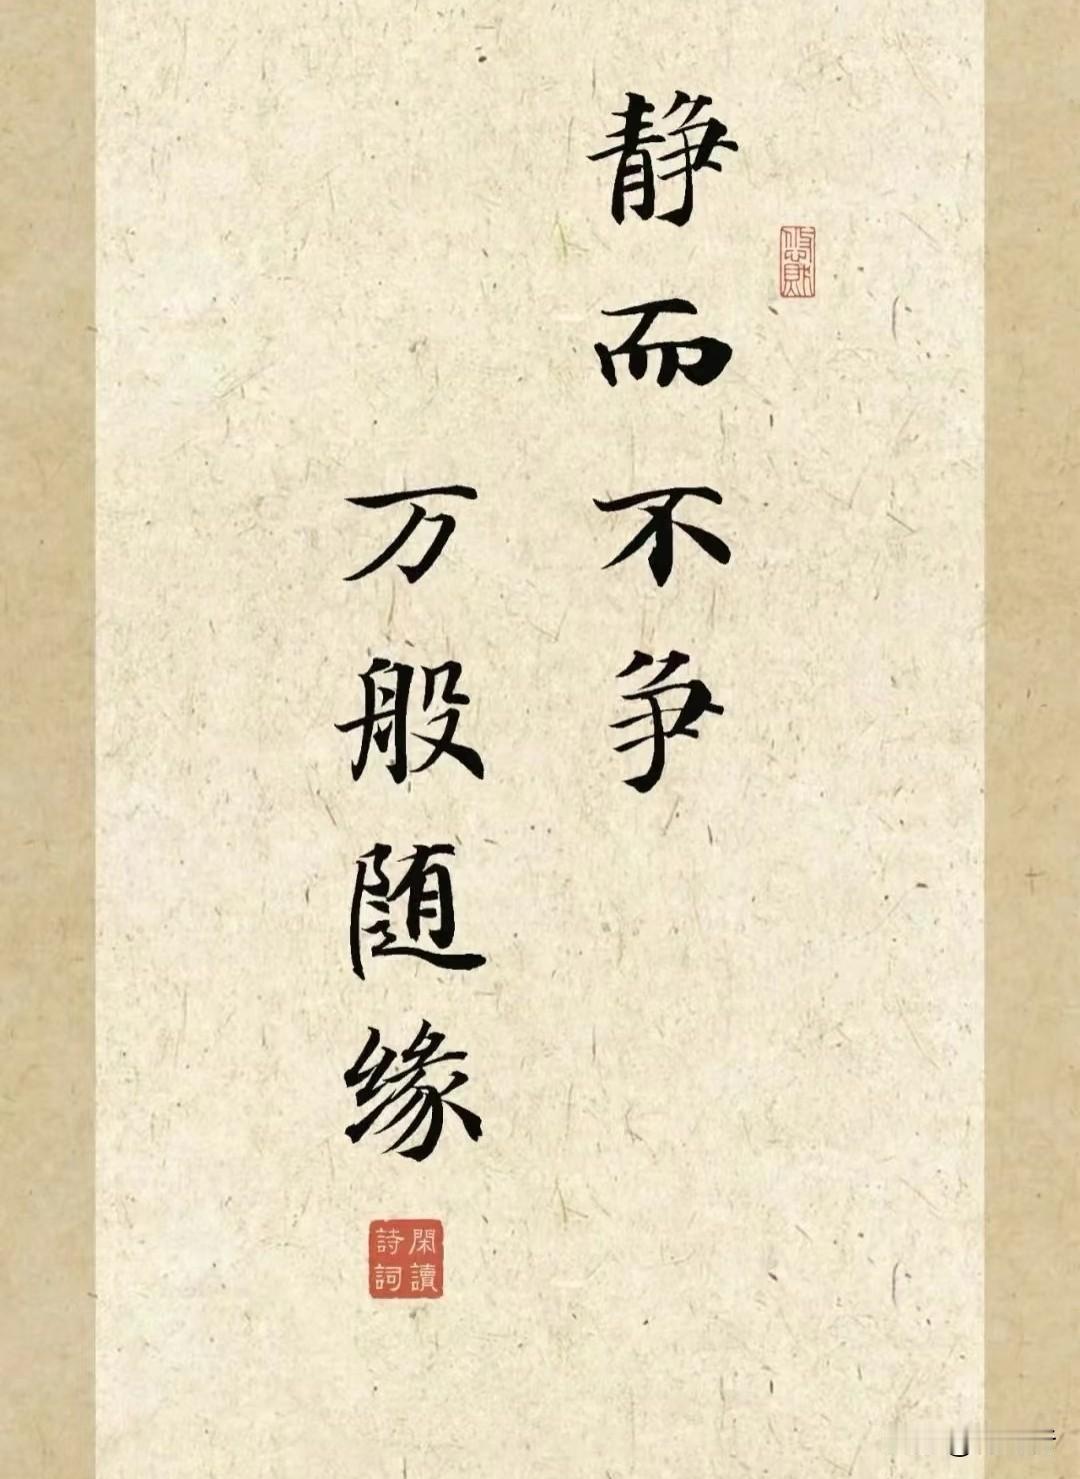 静而不争
万般随缘
閑讀
詩詞